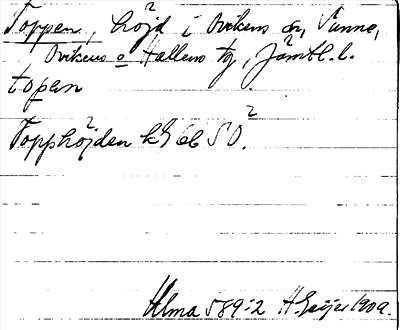 Toppen, höjd i Ovikens sn, Sunne,
Ovikens o Hallens tg, Jämtl. l.
topen
Topphöjden kS 66 SO.
Ulma 589:2 H. Geijer 1909.